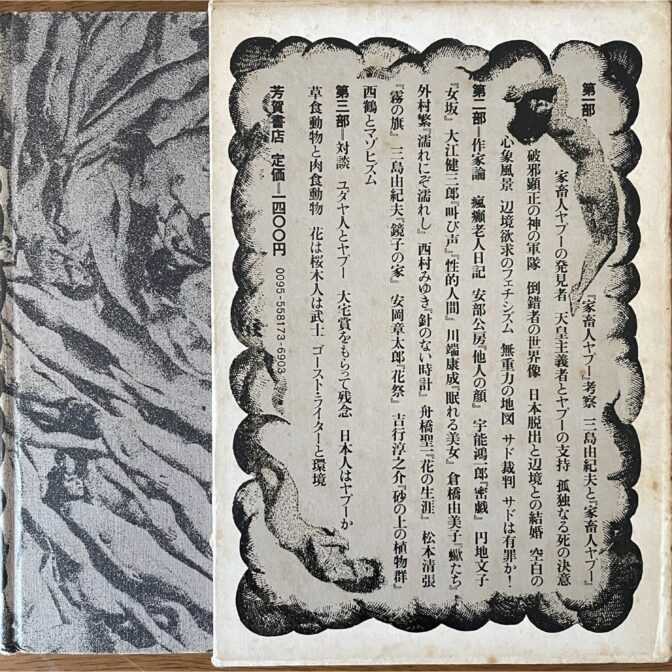 第一部
『家畜人ヤプー』考察　三島由紀夫と『家畜人ヤプー』
家畜人ヤプーの発見者　天皇主義者とヤプーの支持　孤独なる死の決意
破邪顕正の神の軍隊　倒錯者の世界像　日本脱出と辺境との結婚　空白の
心象風景　辺境欲求のフェチシズム　無重力の地図　サド裁判　サドは有罪か！
第二部＝作家論　瘋癲老人日記　安部公房『他人の顔』　宇能鴻一郎『密戯』　円地文子
『女坂』　大江健三郎『叫び声』『性的人間』　川端康成『眠れる美女』　倉橋由美子『蠍たち』
外村繁『濡れにぞ濡れし』　西村みゆき『針のない時計』　舟橋聖一『花の生涯』　松本清張
『霧の旗』　三島由紀夫『鏡子の家』　安岡章太郎『花祭』　吉行淳之介『砂の上の植物群』
西鶴とマゾヒズム
第三部＝対談　ユダヤ人とヤプー　大宅賞をもらって残念　日本人はヤプーか
草食動物と肉食動物　花は桜木人は武士　ゴースト・ライターと環境
芳賀書店　定価＝一四〇〇円　0095-558173-6903